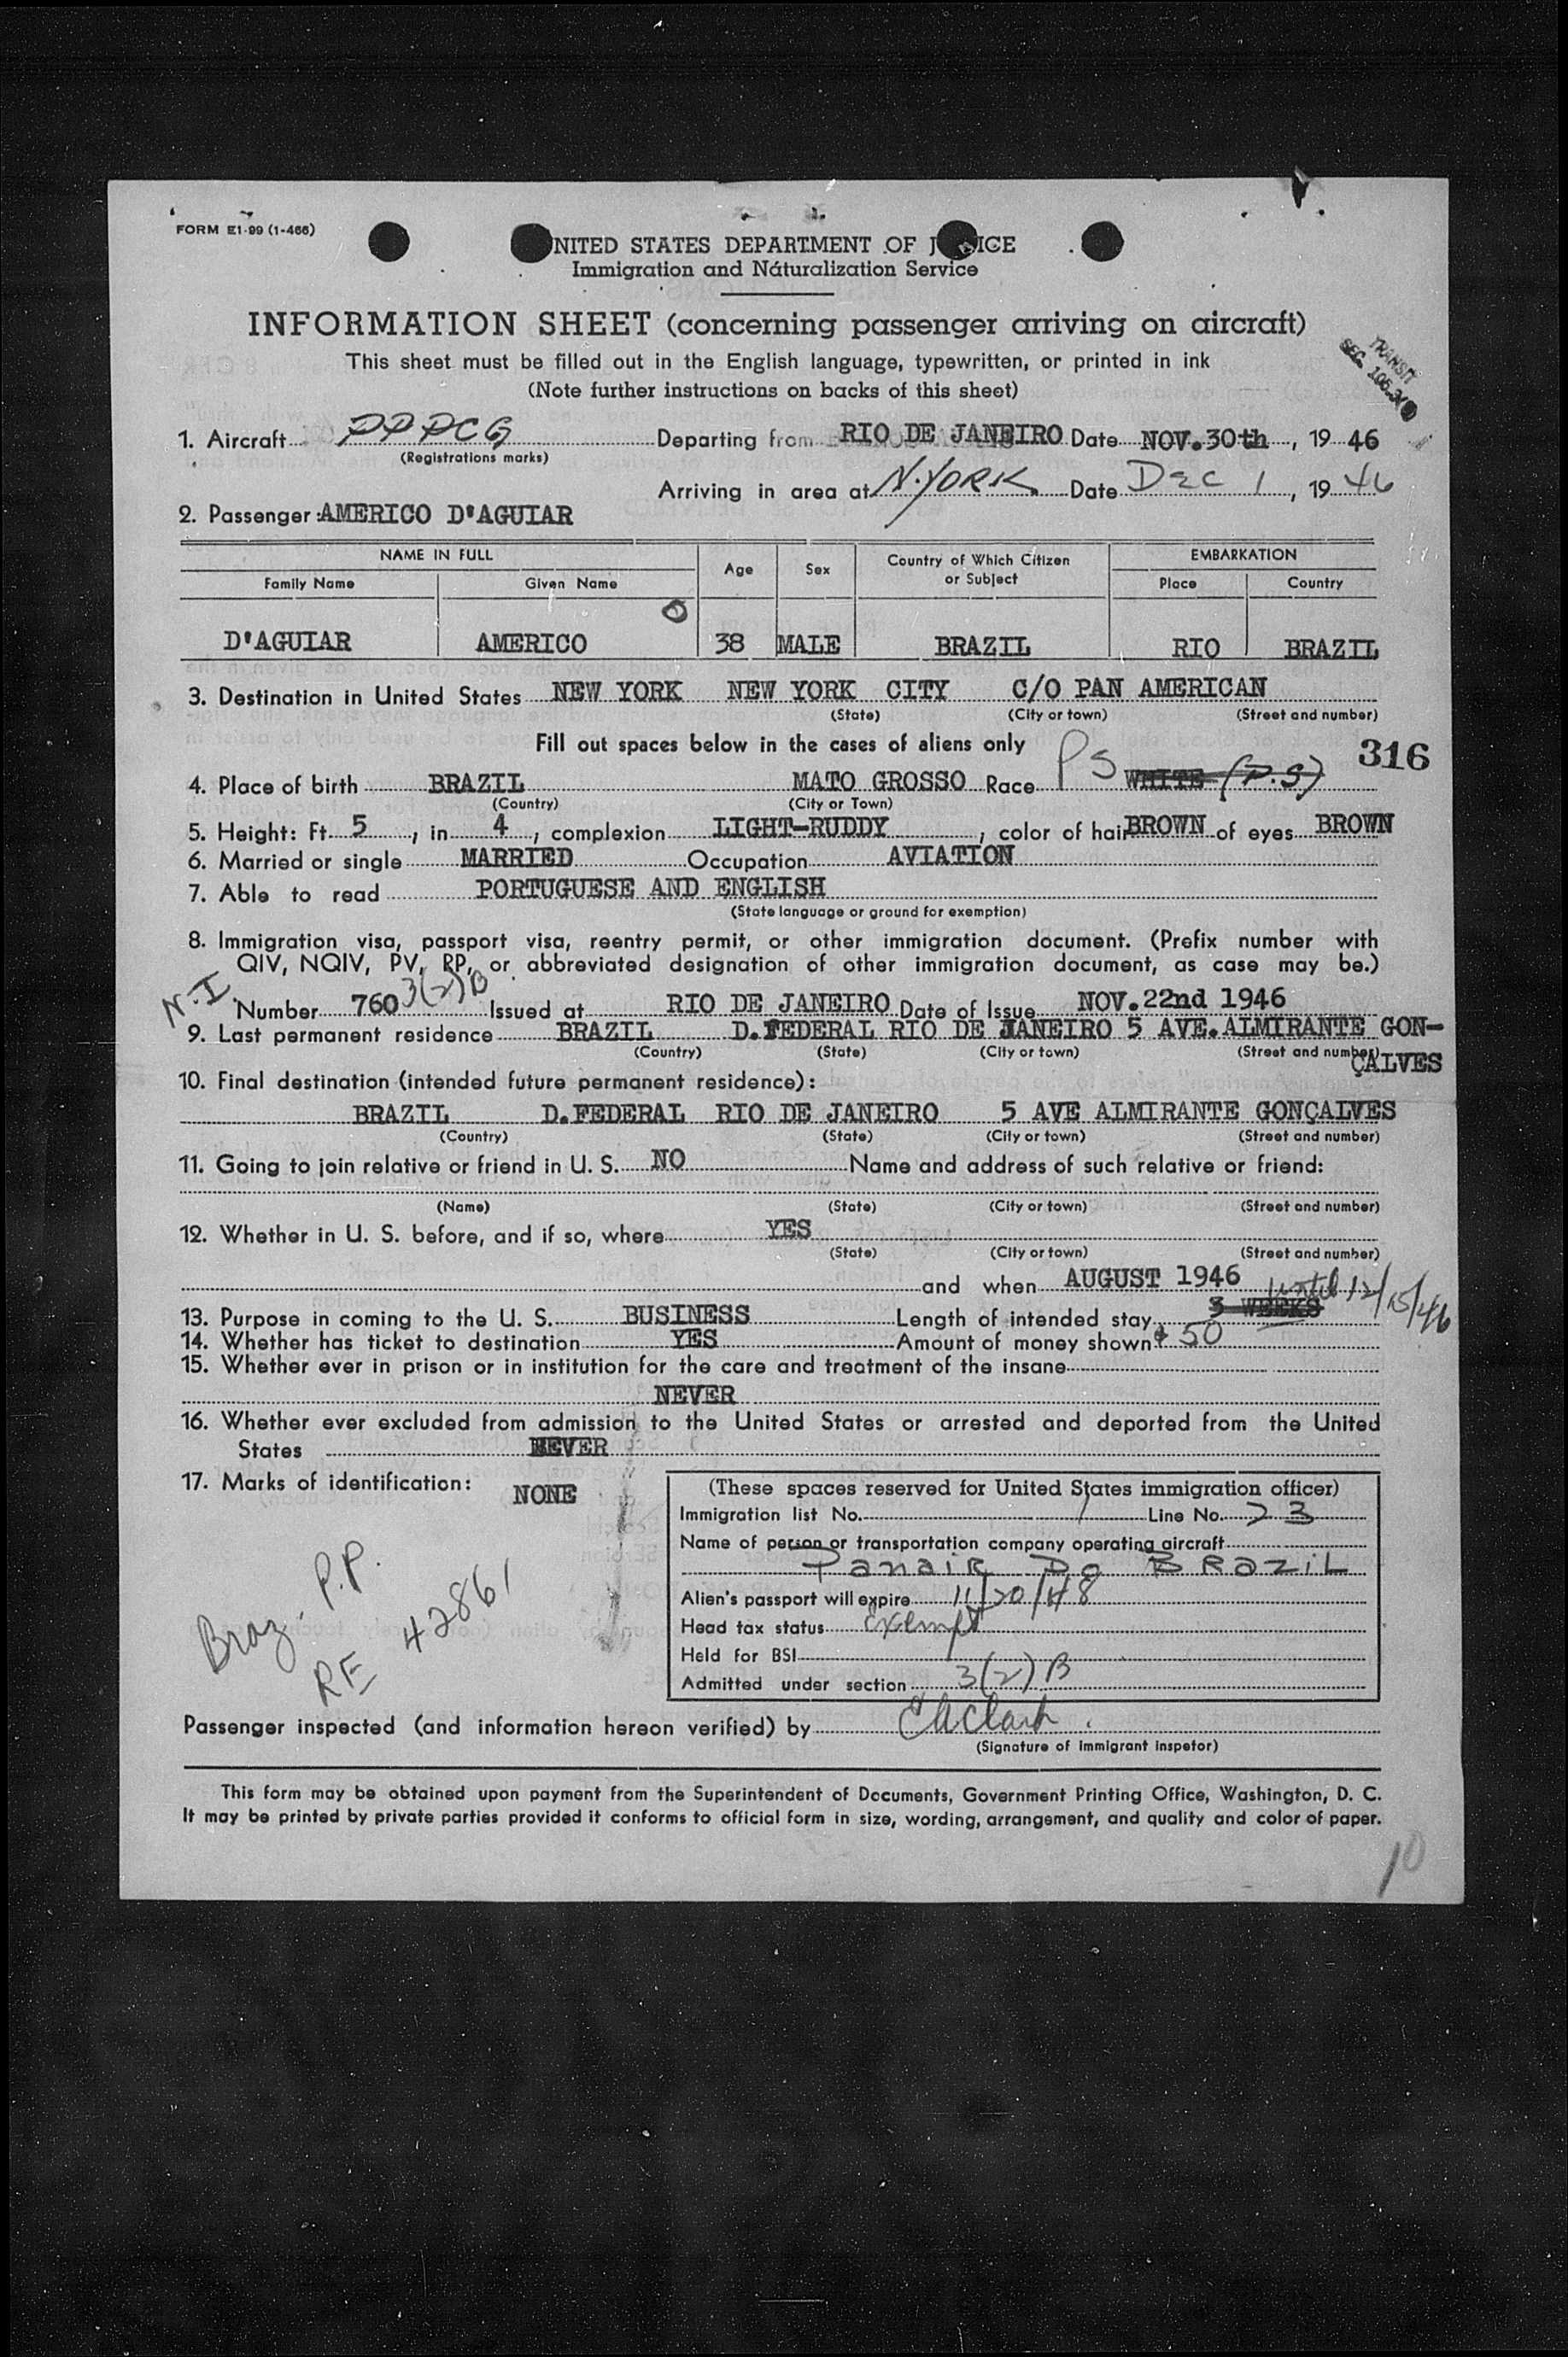 FORM E1-99 (1-466)
NITED STATES DEPARTMENT OF J ICE
Immigration and Naturalization Service
INFORMATION SHEET (concerning passenger arriving on aircraft)
This sheet must be filled out in the English language, typewritten, or printed in ink
(Note further instructions on backs of this sheet)
TRANSIT
SEC.
1. Aircraft PPPCG Departing from RIO DE JANEIRO Date NOV.30th, 19 46
(Registrations marks)
Arriving in area at N.YORK Date DEC 1, 19 46
2. Passenger: AMERICO D'AGUIAR
NAME IN FULL Age Sex Country of Which Citizen or Subject EMBARKATION
Family Name Given Name Place Country
D'AGUIAR AMERICO 38 MALE BRAZIL RIO BRAZIL
3. Destination in United States NEW YORK NEW YORK CITY C/O PAN AMERICAN
(State) (City or town) (Street and number)
Fill out spaces below in the cases of aliens only
316
4. Place of birth BRAZIL MATO GROSSO Race PS WHITE (P.S)
(Country) (City or Town)
5. Height: Ft. 5, in 4, complexion LIGHT-RUDDY, color of hair BROWN of eyes BROWN
6. Married or single MARRIED Occupation AVIATION
7. Able to read PORTUGUESE AND ENGLISH
(State language or ground for exemption)
8. Immigration visa, passport visa, reentry permit, or other immigration document. (Prefix number with
QIV, NQIV, PV, RP, or abbreviated designation of other immigration document, as case may be.)
N.I. Number 760 3(2)B Issued at RIO DE JANEIRO Date of Issue NOV.22nd 1946
9. Last permanent residence BRAZIL D.FEDERAL RIO DE JANEIRO 5 AVE.ALMIRANTE GON-
(Country) (State) (City or town) (Street and number) ÇALVES
10. Final destination (intended future permanent residence):
BRAZIL D.FEDERAL RIO DE JANEIRO 5 AVE ALMIRANTE GONÇALVES
(Country) (State) (City or town) (Street and number)
11. Going to join relative or friend in U. S. NO Name and address of such relative or friend:
(Name) (State) (City or town) (Street and number)
12. Whether in U. S. before, and if so, where YES
(State) (City or town) (Street and number)
and when AUGUST 1946 until 12/15/46
13. Purpose in coming to the U. S. BUSINESS Length of intended stay 3 WEEKS
14. Whether has ticket to destination YES Amount of money shown $ 50
15. Whether ever in prison or in institution for the care and treatment of the insane
NEVER
16. Whether ever excluded from admission to the United States or arrested and deported from the United
States NEVER
17. Marks of identification: NONE
Braz. P.P.
RE 42861
(These spaces reserved for United States immigration officer)
Immigration list No. 1 Line No. 23
Name of person or transportation company operating aircraft
Panair Do BRaziL
Alien's passport will expire 11/20/48
Head tax status Exempt
Held for BSI
Admitted under section 3(2) B
Passenger inspected (and information hereon verified) by CAClark
(Signature of immigrant inspetor)
This form may be obtained upon payment from the Superintendent of Documents, Government Printing Office, Washington, D. C.
It may be printed by private parties provided it conforms to official form in size, wording, arrangement, and quality and color of paper.
10